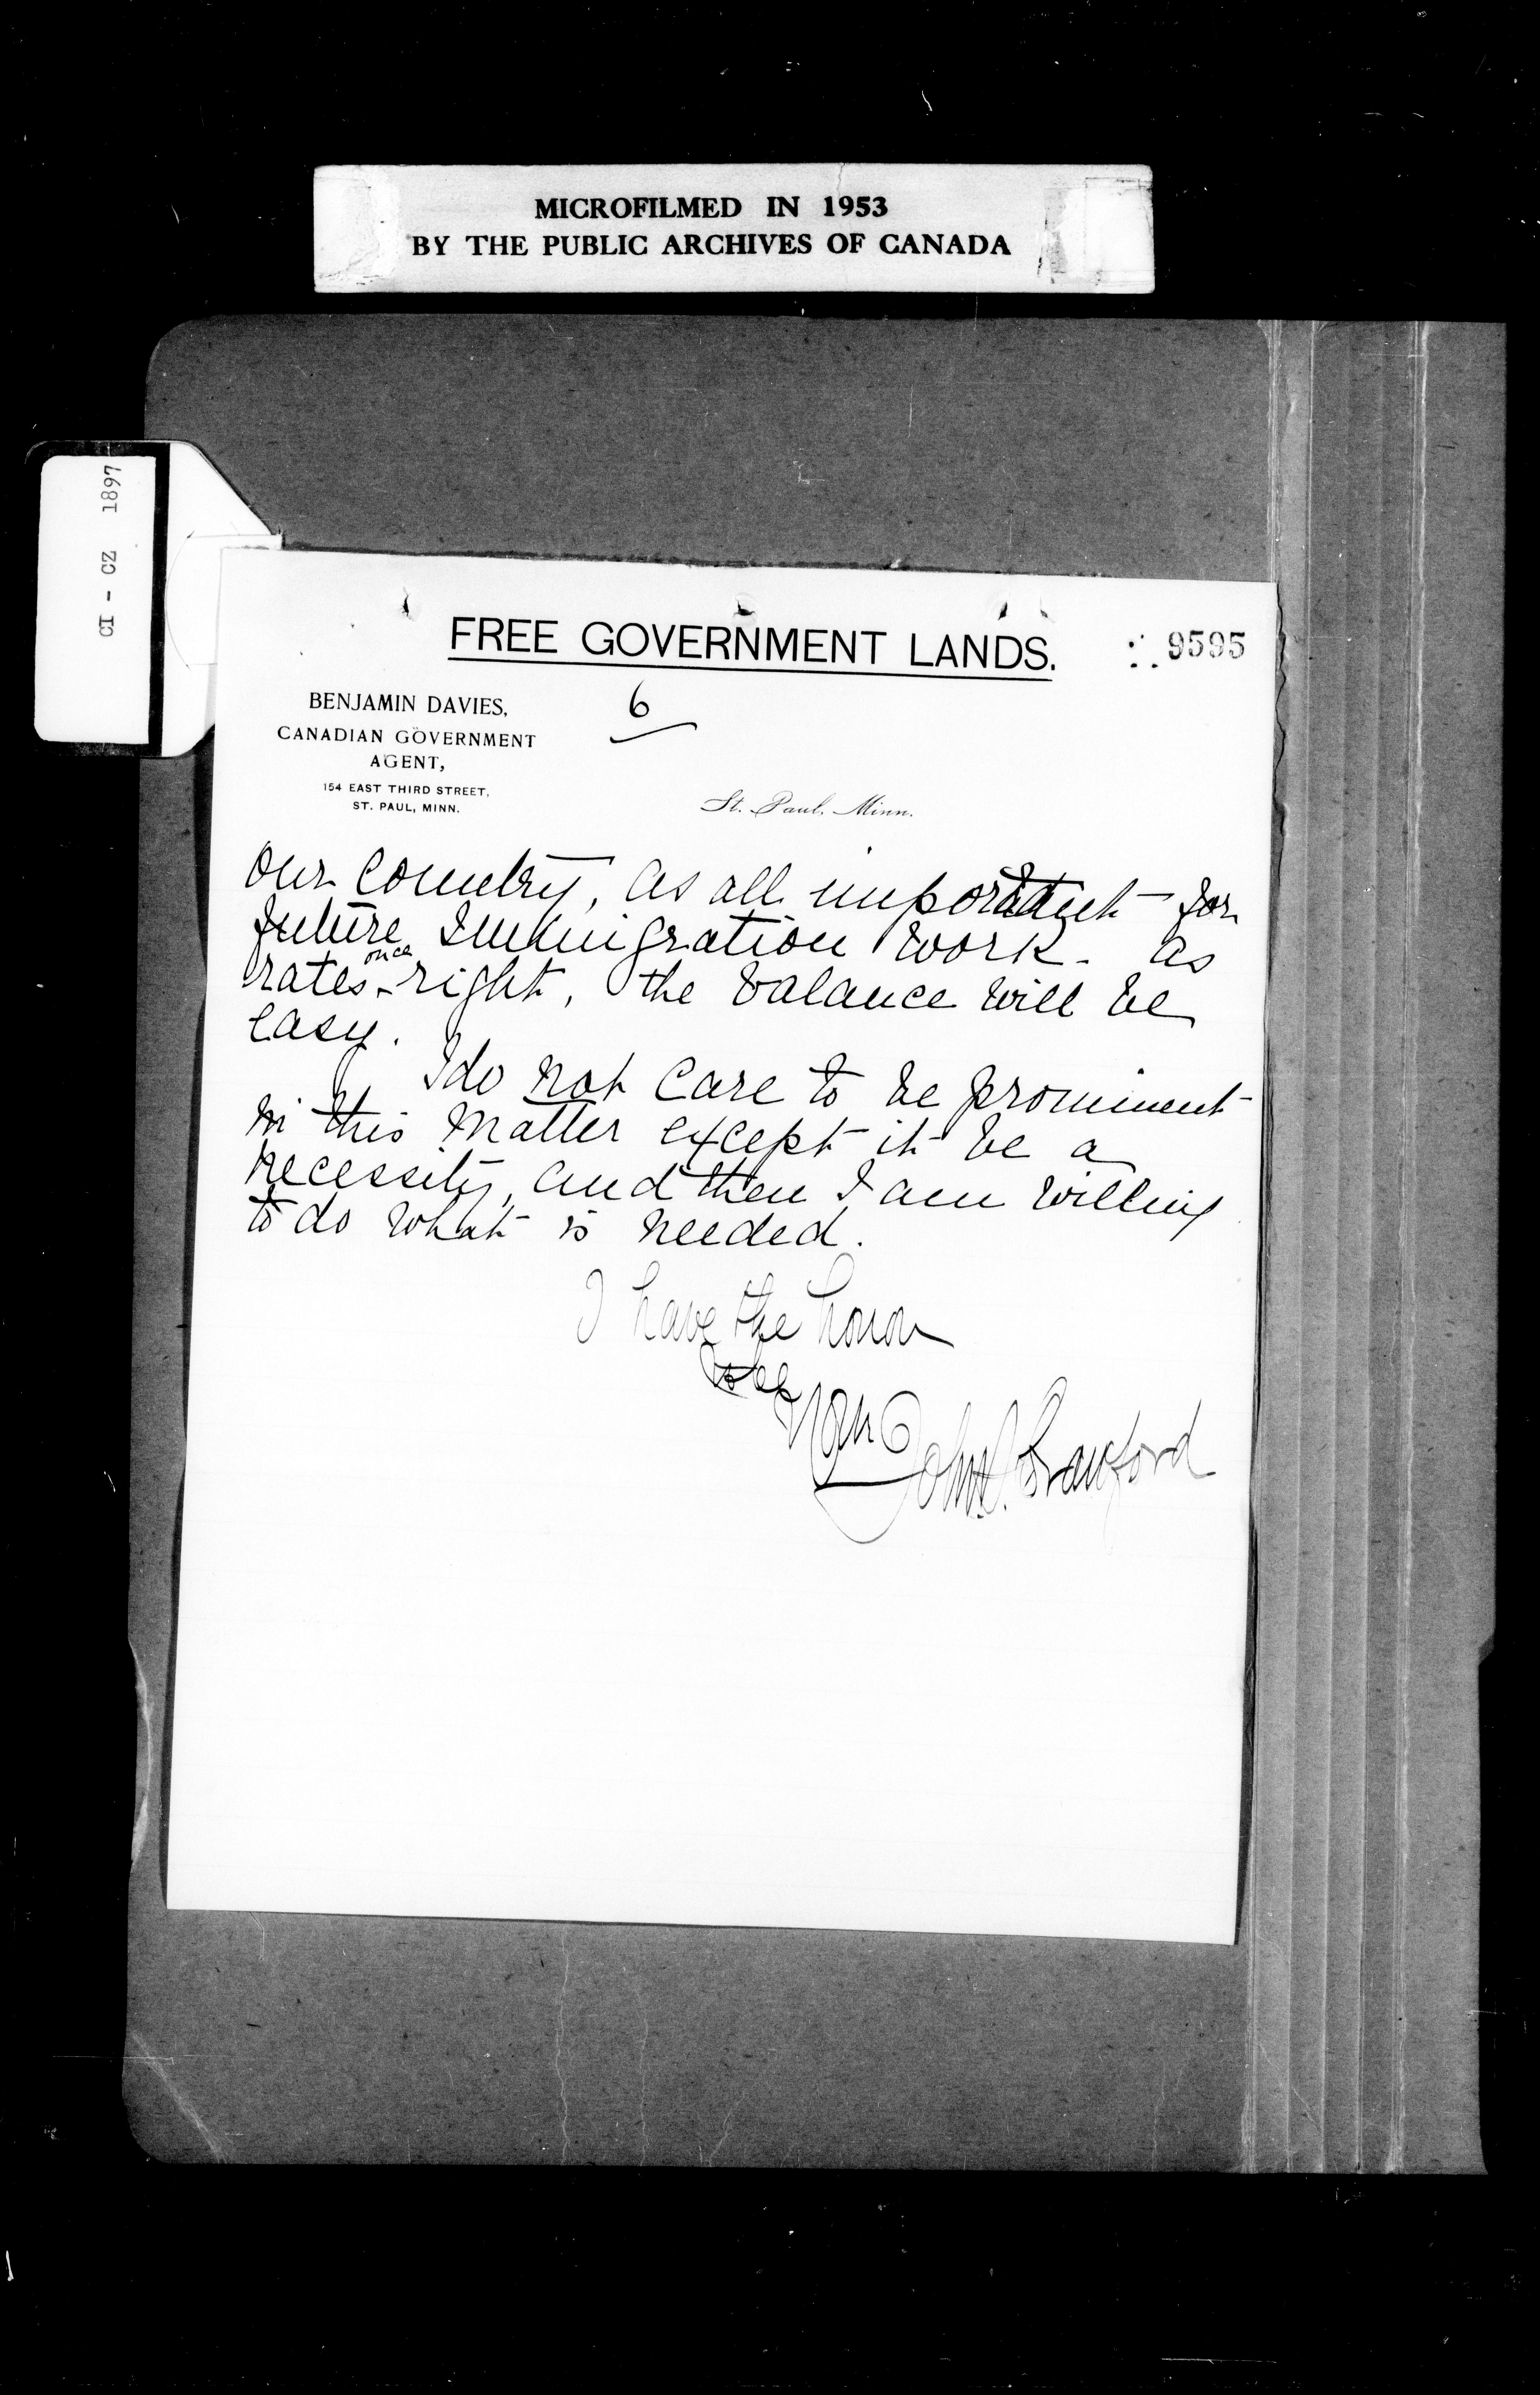 MICROFILMED IN 1953
BY THE PUBLIC ARCHIVES OF CANADA
CI - CZ 1897
FREE GOVERNMENT LANDS.
9595
BENJAMIN DAVIES,
CANADIAN GOVERNMENT
AGENT,
154 EAST THIRD STREET,
ST. PAUL, MINN.
6
St. Paul, Minn.
our country, as all important for
future Immigration work. as
rates once right, the balance will be
easy.
I do not care to be prominent
in this matter except it be a
necessity, and then I am willing
to do what is needed.
I have the honor
to be
Yours
John S. Crawford